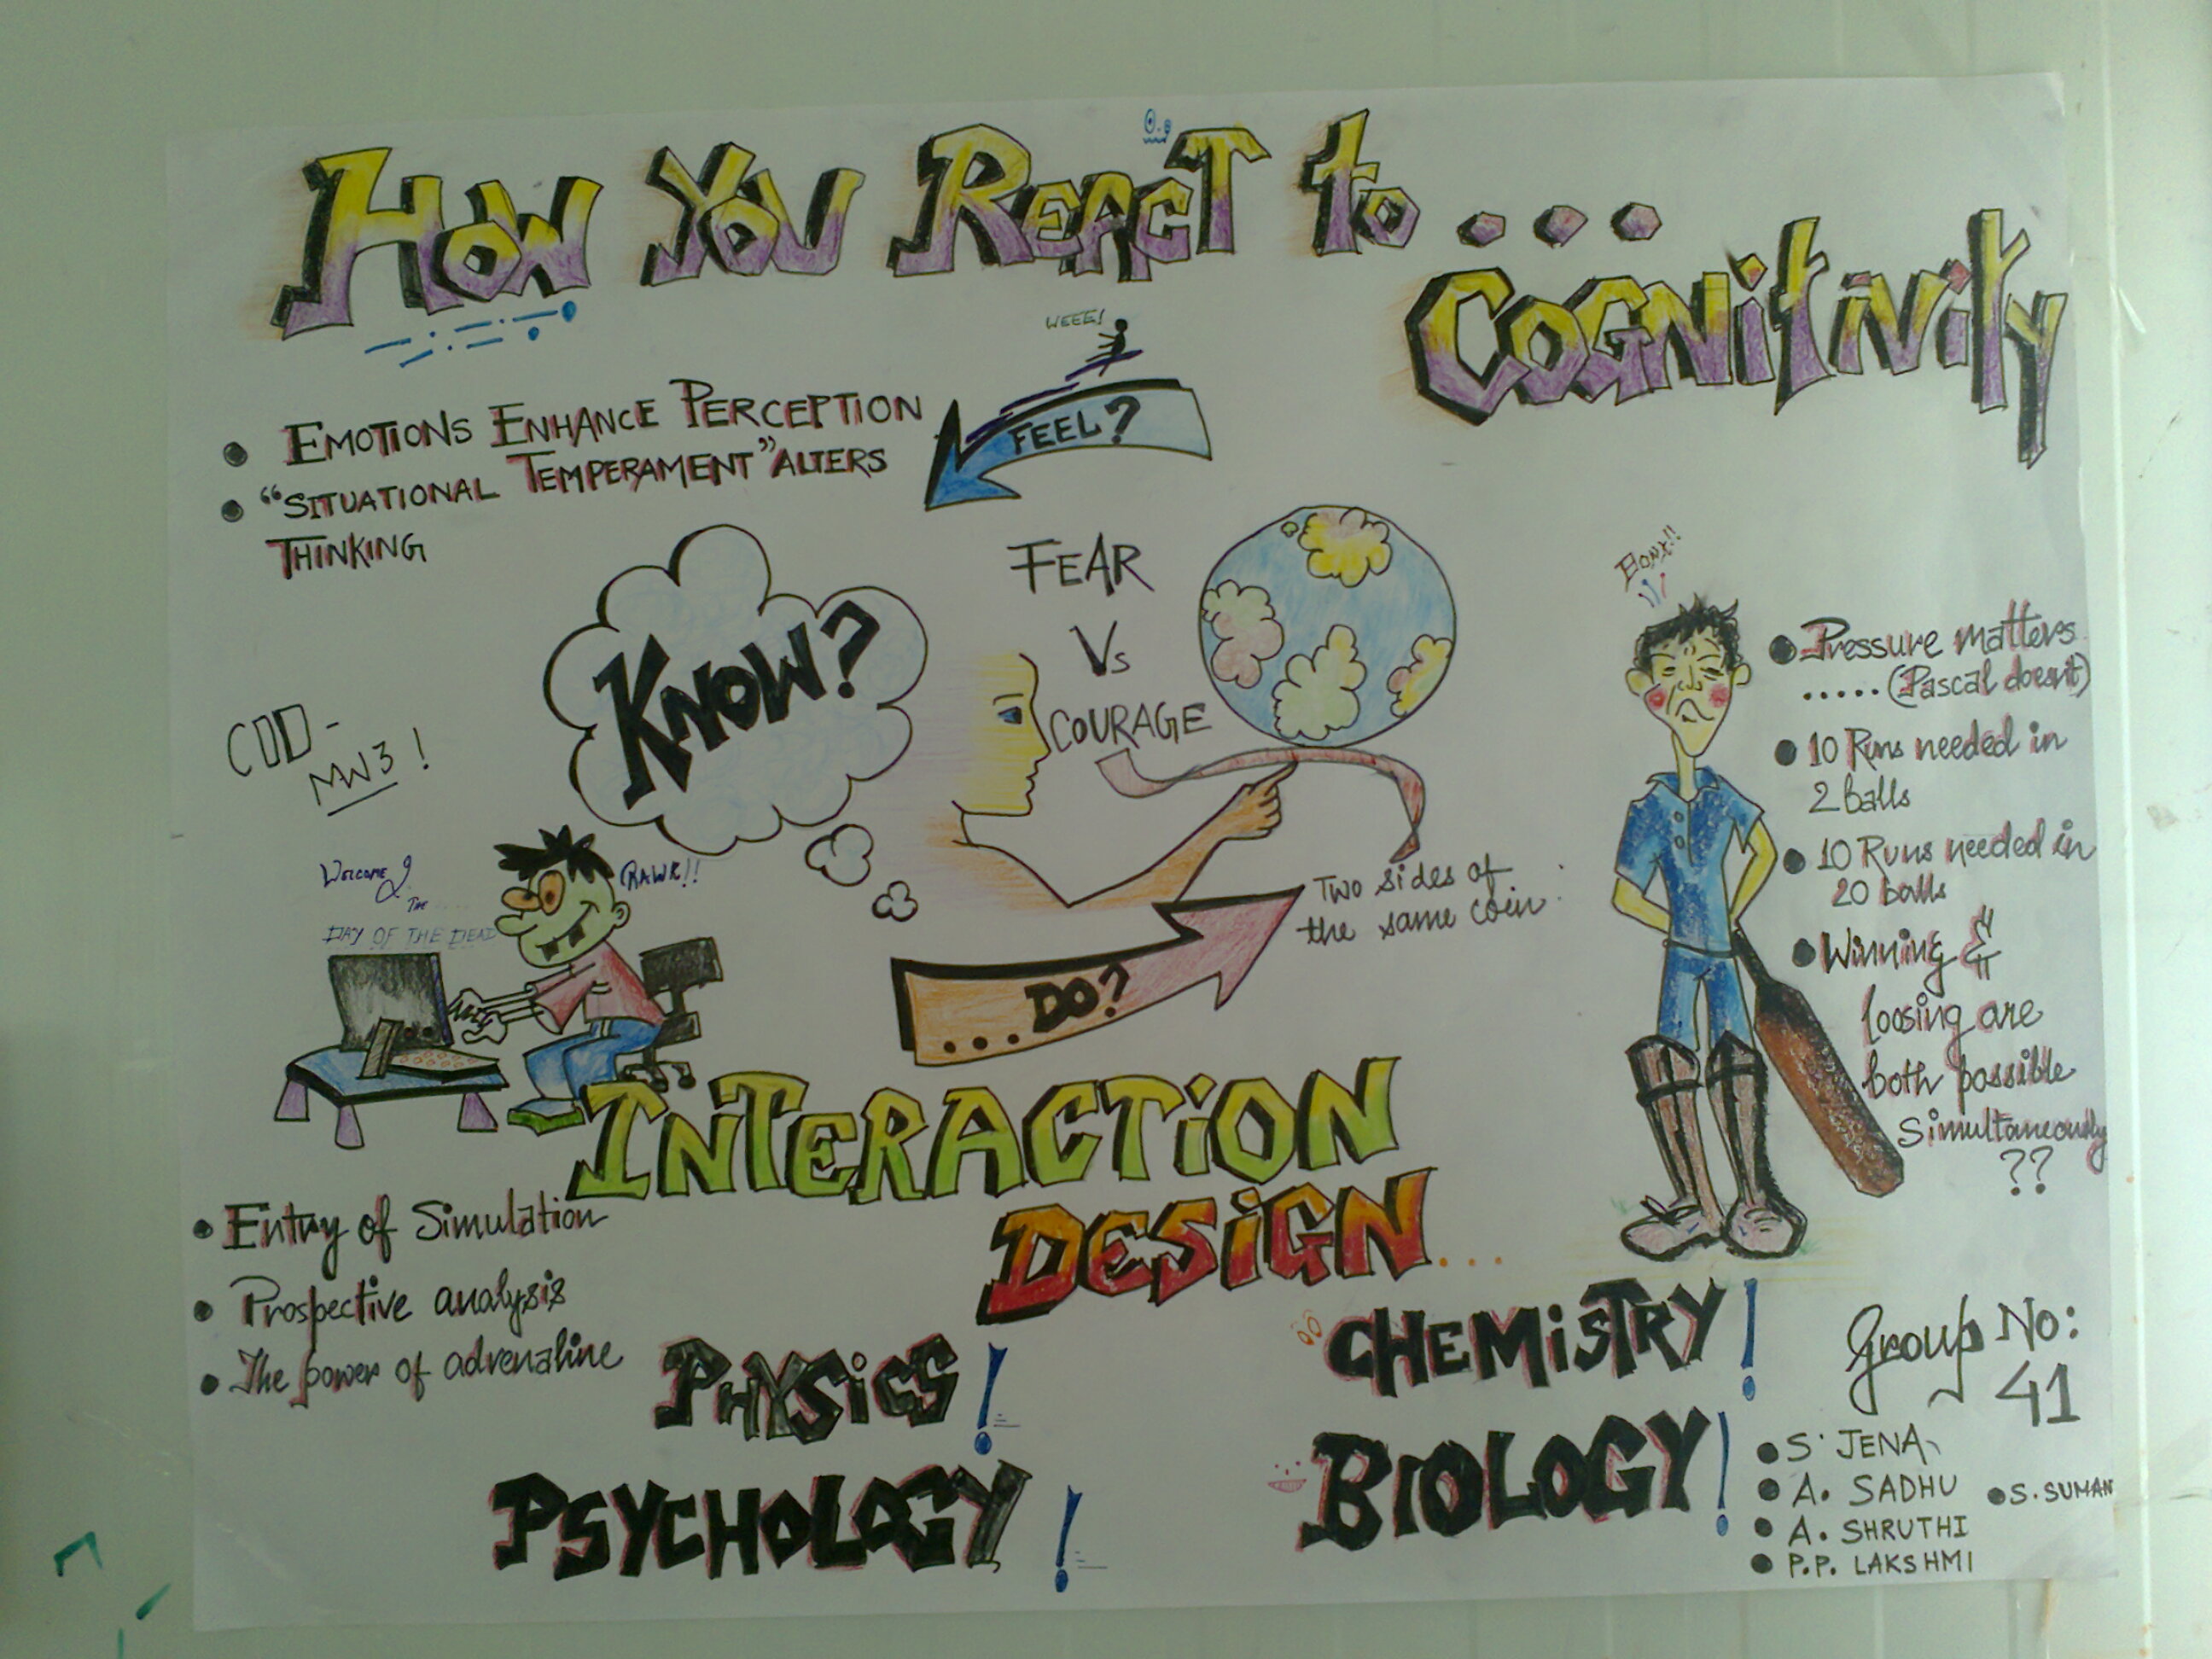 How You React to . . .
Cognitivity
WEEE!
• EMOTIONS ENHANCE PERCEPTION
• "SITUATIONAL TEMPERAMENT" ALTERS
THINKING
FEEL?
FEAR
Vs
COURAGE
KNOW?
COD-
MW3!
WELCOME
THE
DAY OF THE DEAD
RAWR!!
...DO?
Two sides of
the same coin.
• Pressure matters
.....(Pascal doesnt)
• 10 Runs needed in
2 balls
• 10 Runs needed in
20 balls
• Winning &
loosing are
both possible
simultaneously
??
INTERACTION
DESIGN...
• Entry of Simulation
• Prospective analysis
• The power of adrenaline
PHYSICS!
CHEMISTRY!
PSYCHOLOGY!
BIOLOGY!
Group No:
41
• S. JENA
• A. SADHU
• S. SUMAN
• A. SHRUTHI
• P.P. LAKSHMI